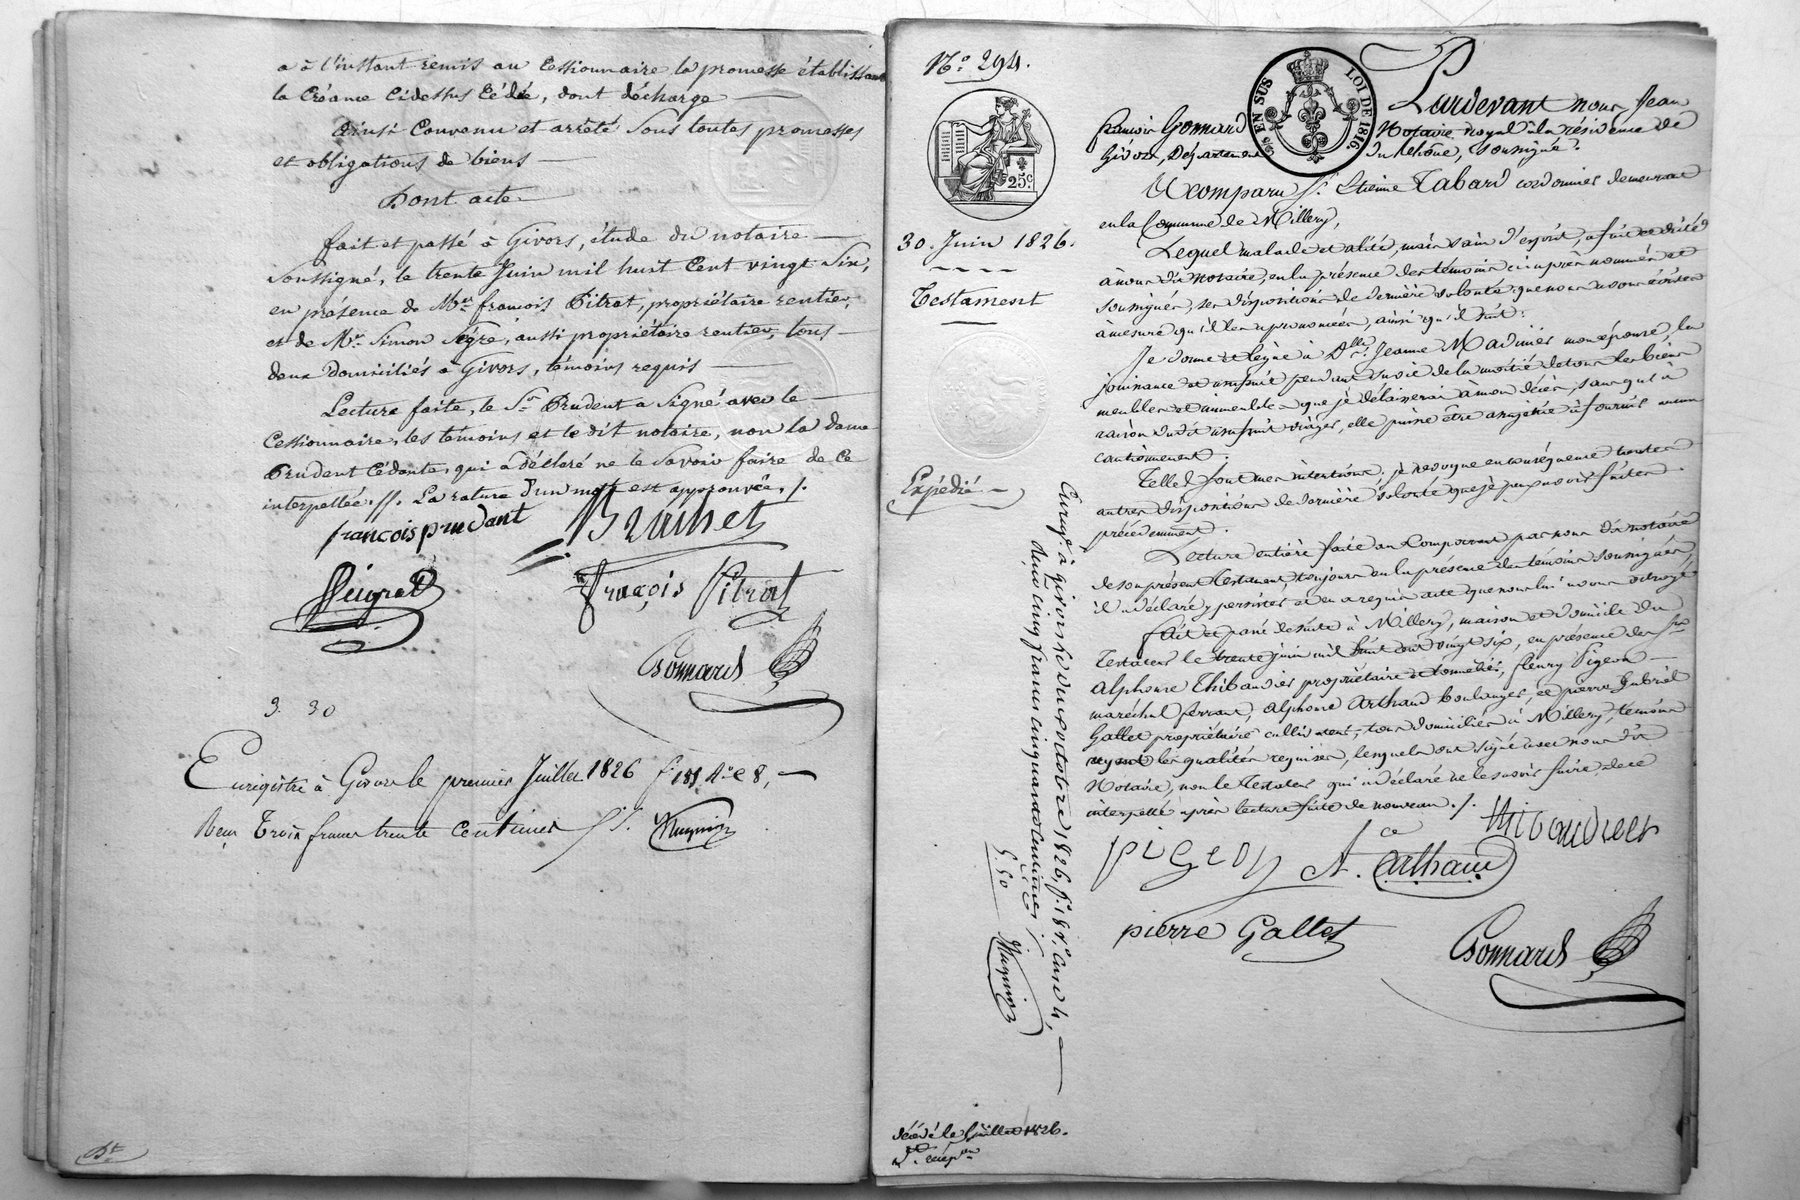 a à l'instant remis au Cessionnaire la promesse établissant
la Créance Cidessus Cédée, dont décharge
Ainsi Convenu et arrêté sous toutes promesses
et obligations de biens
Dont acte
fait et passé à Givors, étude du notaire
Soussigné, le trente Juin mil huit Cent vingt Six,
en présence de Mr. françois Pitrat, propriétaire rentier,
et de Mr. Simon Segré, aussi propriétaire rentier, tous
deux domiciliés à Givors, témoins requis
Lecture faite, le Sr. Prudent a Signé avec le
Cessionnaire, les témoins et le dit notaire, non la dame
Prudent Cédante, qui a déclaré ne le Savoir faire de ce
interpellée. //. La rature d'un mot est approuvée. /.
françois prudant
François Pitrat
Gonnard
3. 30
Enregistré à Givors le premier Juillet 1826 f. 151 Ro. C 8,
Reçu Trois francs trente Centimes
No. 294.
25c.
30. Juin 1826.
Testament
Expédié
5/5 EN SUS
LOI DE 1816
Pardevant nous Jean
francois Gonnard Notaire royal à la résidence de
Givors, Département du Rhône, soussigné.
A comparu Sr. Etienne Tabard cordonnier demeurant
en la Commune de Millery,
Lequel malade et alité, mais sain d'esprit, a fait et dicté
à nous dit Notaire, en la présence des témoins ci après nommés et
soussignés, ses dispositions de dernière volonté que nous avons écrites
à mesure qu'il les a prononcées, ainsi qu'il suit:
Je donne et lègue à Dlle. Jeanne Madinier mon épouse, la
jouissance et usufruit pendant sa vie de la moitié de tous les biens
meubles et immeubles que je délaisserai à mon décès, sans qu'à
raison dudit usufruit viager, elle puisse être assujettie à fournir aucun
cautionnement.
Telles sont mes intentions; je révoque en conséquence toutes
autres dispositions de dernière volonté que je puis avoir faites
précédemment.
Lecture entière faite au Comparant par nous dit notaire
de son présent testament, toujours en la présence des témoins soussignés,
il a déclaré y persister et en a requis acte que nous lui avons octroyé
fait et passé de suite à Millery, maison et domicile du
Testateur le trente juin mil huit cent vingt six, en présence des Srs.
Alphonse Thibaudier propriétaire et tonnelier, fleury Pigeon
maréchal ferrant, Alphonse Arthaud boulanger, et pierre Gabriel
Gallet propriétaire cultivateur, tous domiciliés à Millery, témoins
ayant les qualités requises, lesquels ont signé avec nous dit
Notaire, non le Testateur qui a déclaré ne le savoir faire de ce
interpellé après lecture faite de nouveau. /.
Thibaudier
pigeon
A. ce arthaud
pierre Gallet
Gonnard
Enregé. à givors le deux octobre 1826, fo. 181 case 4,
Reçu cinq francs cinquante centimes
5. 50
décédé le juillet 1826.